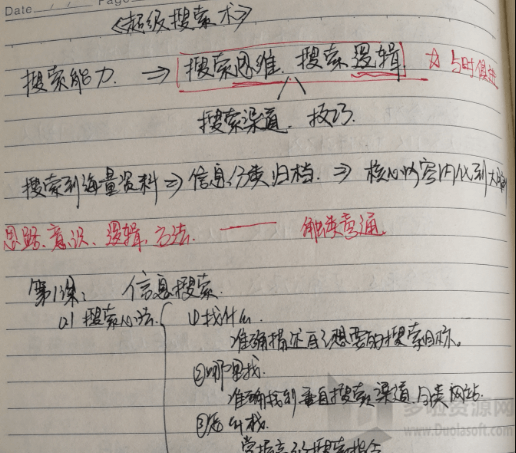 Date
Page
《超级搜索术》
搜索能力 ⇒ 搜索思维 搜索逻辑 ☆ 与时俱进
搜索渠道、技巧.
搜索到海量资料 ⇒ 信息分类归档 ⇒ 核心内容内化到大脑
思路、意识、逻辑、方法. —— 融会贯通.
第1课: 信息搜索.
01 搜索心法. ①找什么.
准确描述自己想要的搜索目标。
②哪里找.
准确找到垂直搜索渠道、分类网站.
③怎么找.
多啦资源网
www.Duolasoft.com